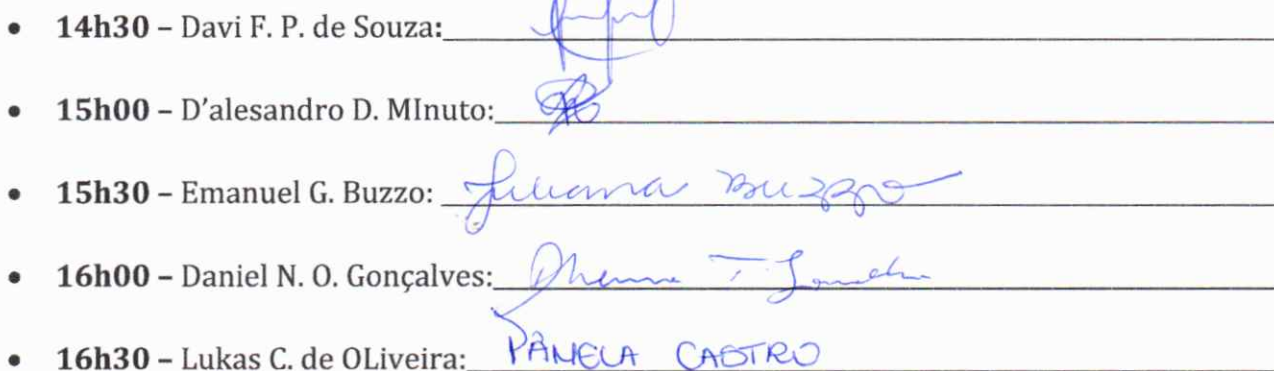 • 14h30 – Davi F. P. de Souza:
• 15h00 – D'alesandro D. MInuto:
• 15h30 – Emanuel G. Buzzo: Juliana Buzzo
• 16h00 – Daniel N. O. Gonçalves:
• 16h30 – Lukas C. de OLiveira: PÂMELA CASTRO